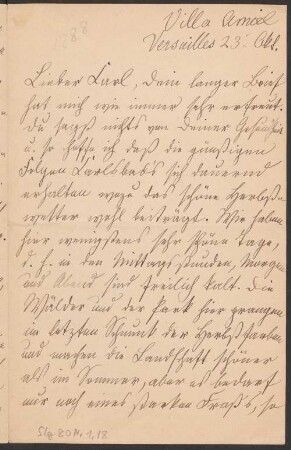 88
Villa Amiel
Versailles 23. Okt.
Lieber Carl, Dein langer Brief
hat mich wie immer sehr erfreut.
Du sagst nichts von Deiner Gesundheit
u. so hoffe ich daß die günstigen
Folgen Carlsbads sich dauernd
erhalten wozu das schöne Herbst-
wetter wohl beiträgt. Wir haben
hier wenigstens sehr schöne Tage,
d. h. in den Mittagsstunden, Morgen
und Abend sind freilich kalt. Die
Wälder und der Park hier prangen
im letzten Schmuck der Herbstfarben
und machen die Landschaft schöner
als im Sommer, aber es bedarf
nur noch eines starken Frosts, so
Slg. 80 Nr. 1, 18